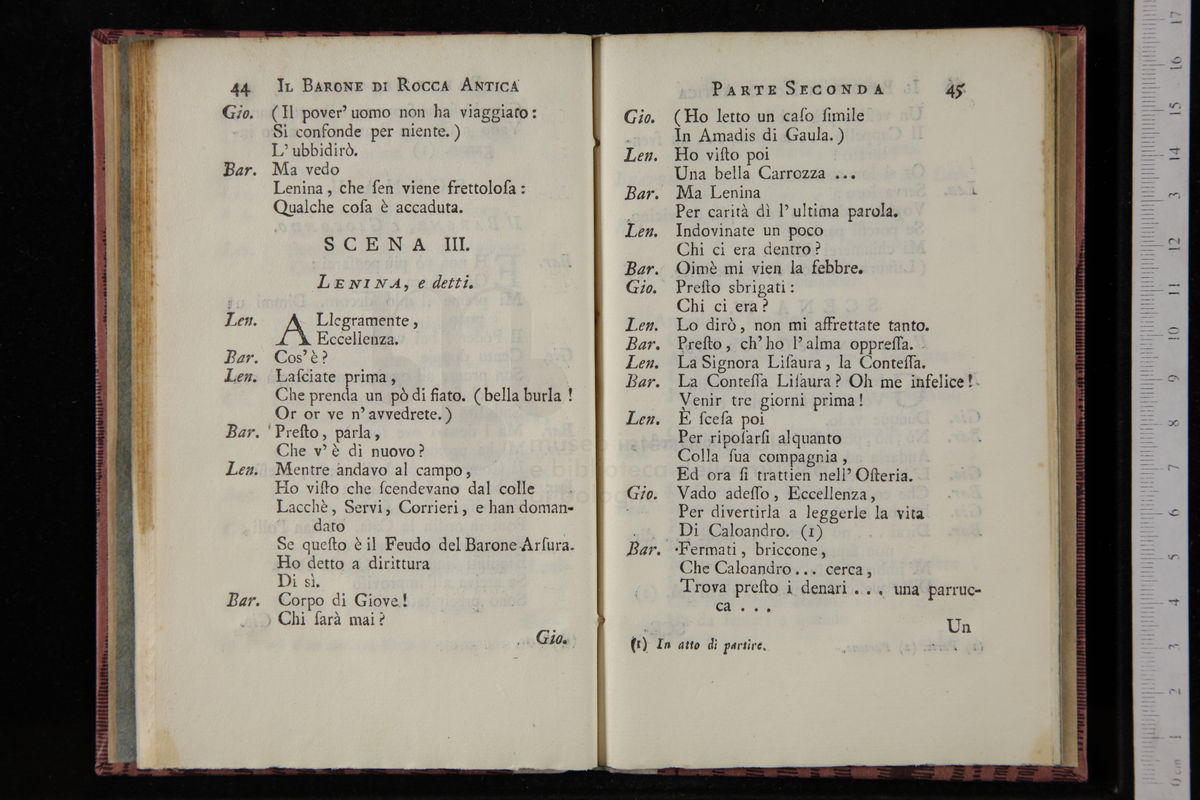 44 IL BARONE DI ROCCA ANTICA
Gio. (Il pover' uomo non ha viaggiato:
Si confonde per niente.)
L' ubbidirò.
Bar. Ma vedo
Lenina, che ſen viene frettoloſa:
Qualche coſa è accaduta.
SCENA III.
LENINA, e detti.
Len. ALlegramente,
Eccellenza.
Bar. Cos' è?
Len. Laſciate prima,
Che prenda un pò di fiato. (bella burla!
Or or ve n' avvedrete.)
Bar. Preſto, parla,
Che v' è di nuovo?
Len. Mentre andavo al campo,
Ho viſto che ſcendevano dal colle
Lacchè, Servi, Corrieri, e han doman-
dato
Se queſto è il Feudo del Barone Arſura.
Ho detto a dirittura
Di sì.
Bar. Corpo di Giove!
Chi ſarà mai?
Gio.
PARTE SECONDA 45
Gio. (Ho letto un caſo ſimile
In Amadis di Gaula.)
Len. Ho viſto poi
Una bella Carrozza ...
Bar. Ma Lenina
Per carità dì l' ultima parola.
Len. Indovinate un poco
Chi ci era dentro?
Bar. Oimè mi vien la febbre.
Gio. Preſto sbrigati:
Chi ci era?
Len. Lo dirò, non mi affrettate tanto.
Bar. Preſto, ch' ho l' alma oppreſſa.
Len. La Signora Liſaura, la Conteſſa.
Bar. La Conteſſa Liſaura? Oh me infelice!
Venir tre giorni prima!
Len. È ſceſa poi
Per ripoſarſi alquanto
Colla ſua compagnia,
Ed ora ſi trattien nell' Oſteria.
Gio. Vado adeſſo, Eccellenza,
Per divertirla a leggerle la vita
Di Caloandro. (1)
Bar. Fermati, briccone,
Che Caloandro ... cerca,
Trova preſto i denari ... una parruc-
ca ...
Un
(1) In atto di partire.